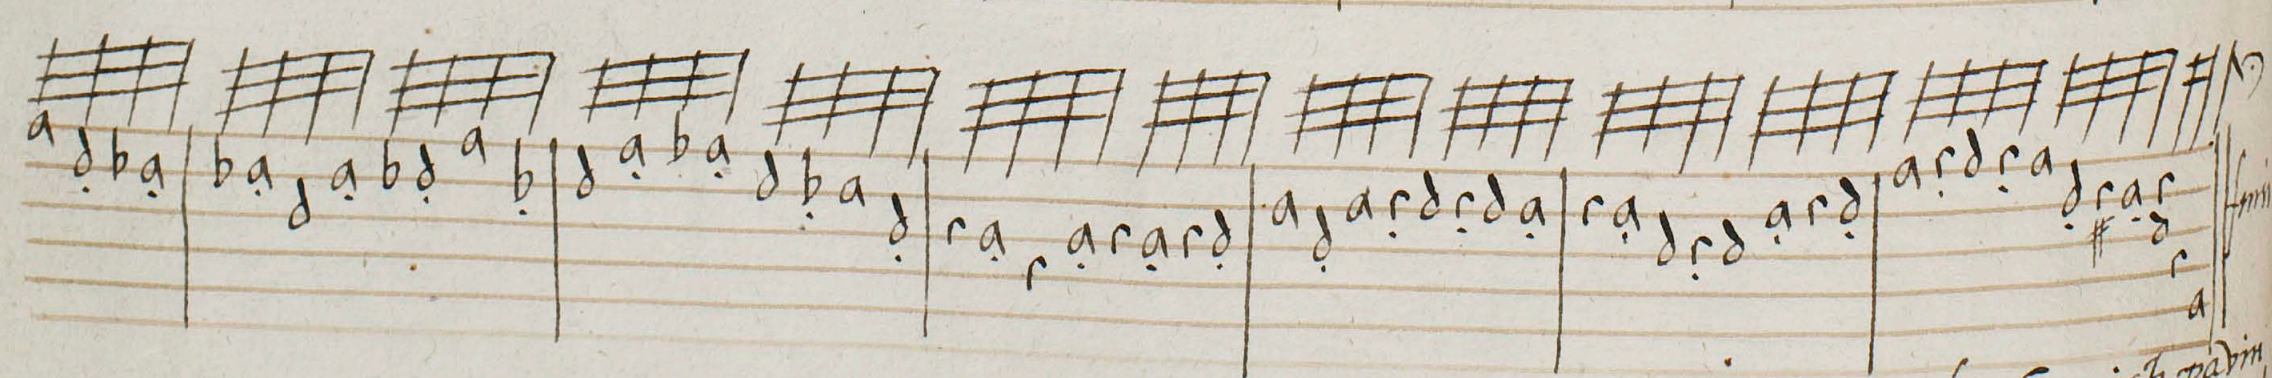 a d b a b a d a b d a b d a b a d b a d r a r a r a r d a d a r d r d a r a d r d a r d a r d r a d r a r
d
r
a